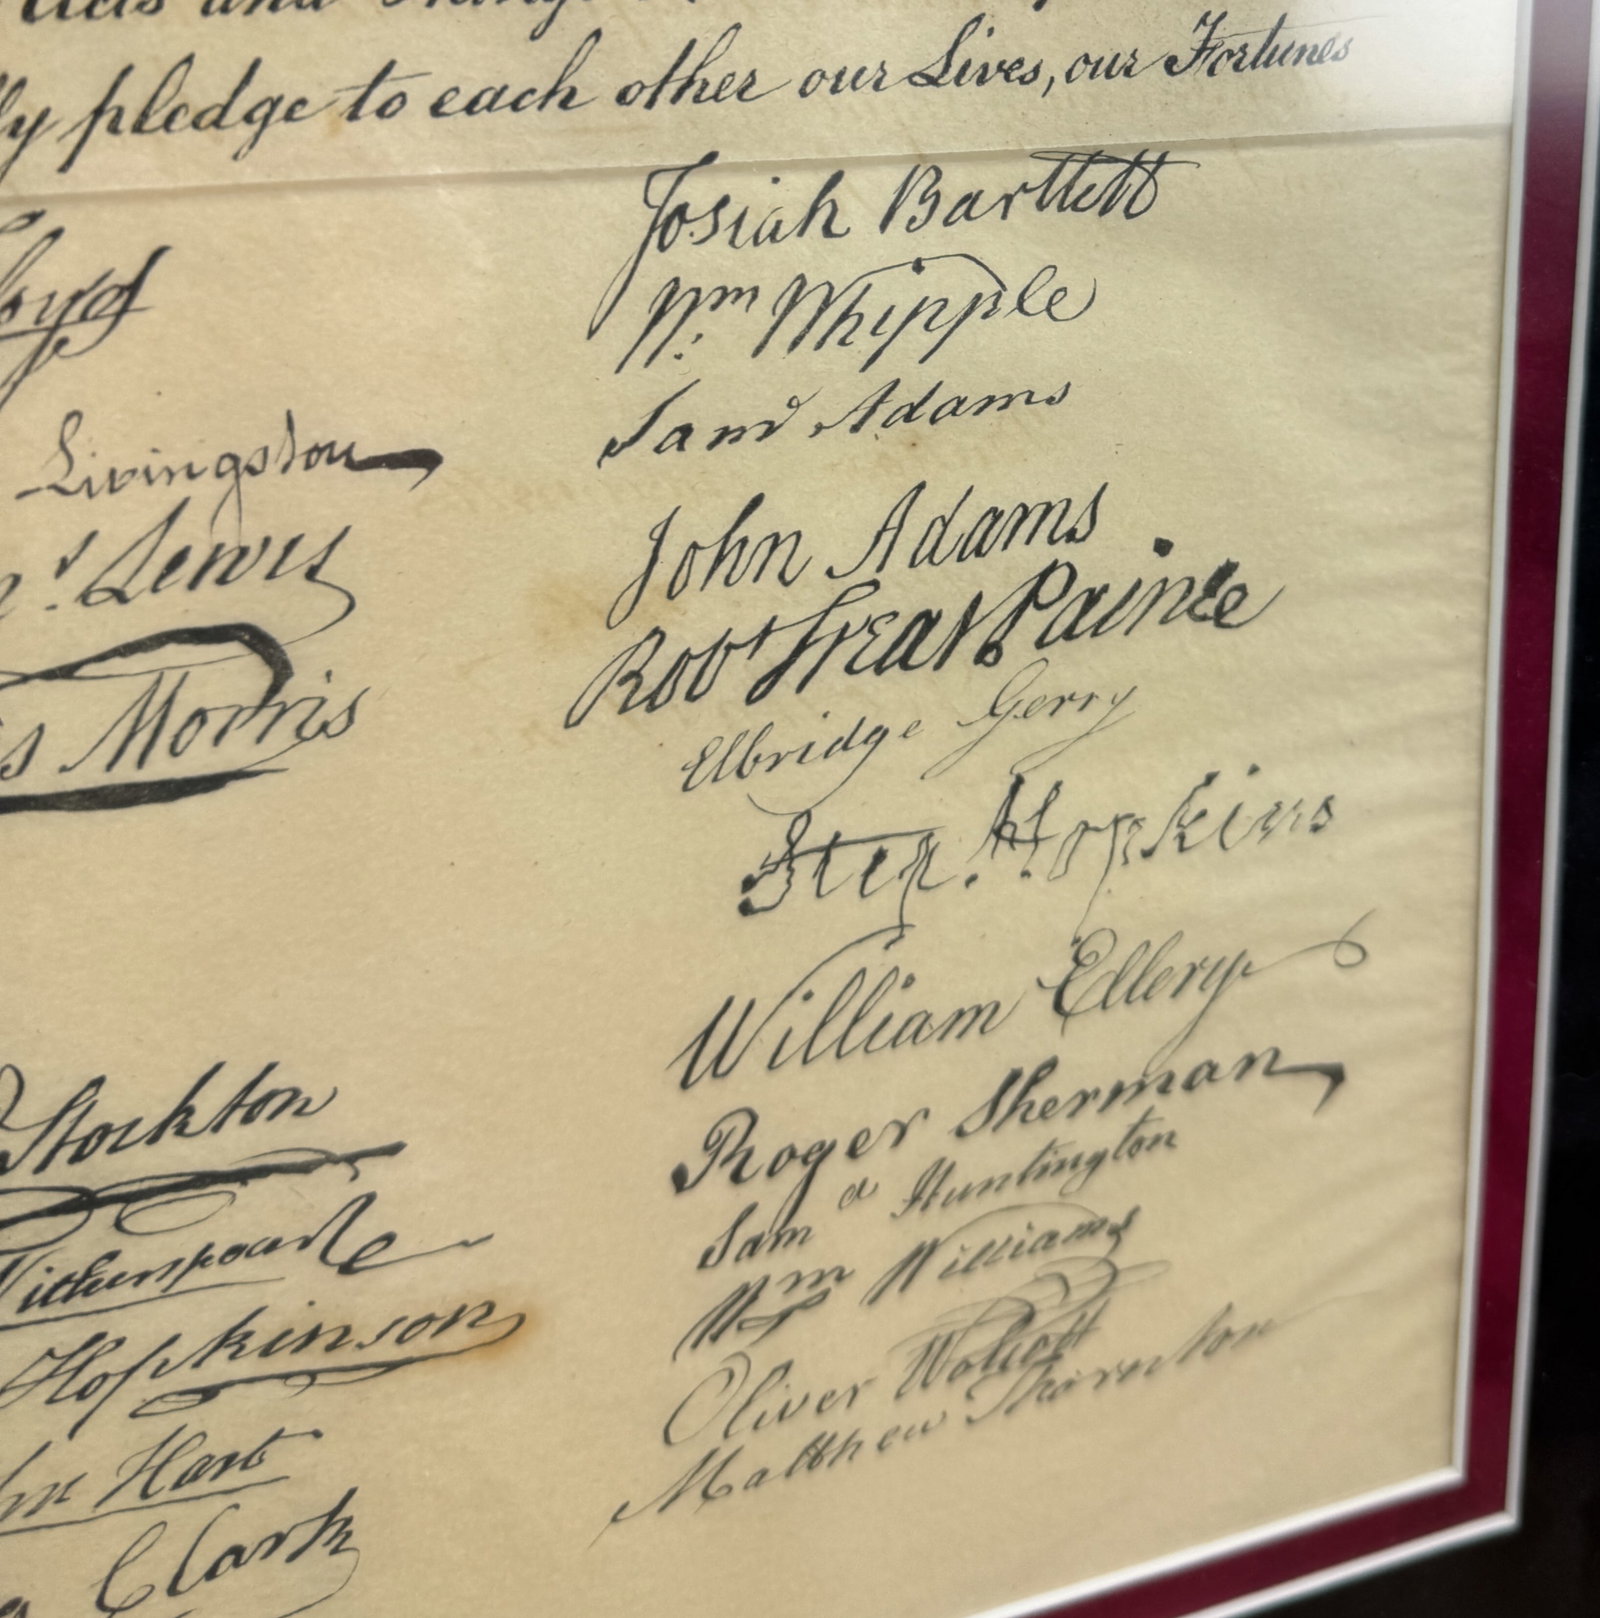 and
pledge to each other our Lives, our Fortunes
Livingston
Lewis
Morris
Stockton
Hopkinson
Hart
Clark
Josiah Bartlett
Wm Whipple
Saml Adams
John Adams
Robt Treat Paine
Elbridge Gerry
Step. Hopkins
William Ellery
Roger Sherman
Samel Huntington
Wm Williams
Oliver Wolcott
Matthew Thornton